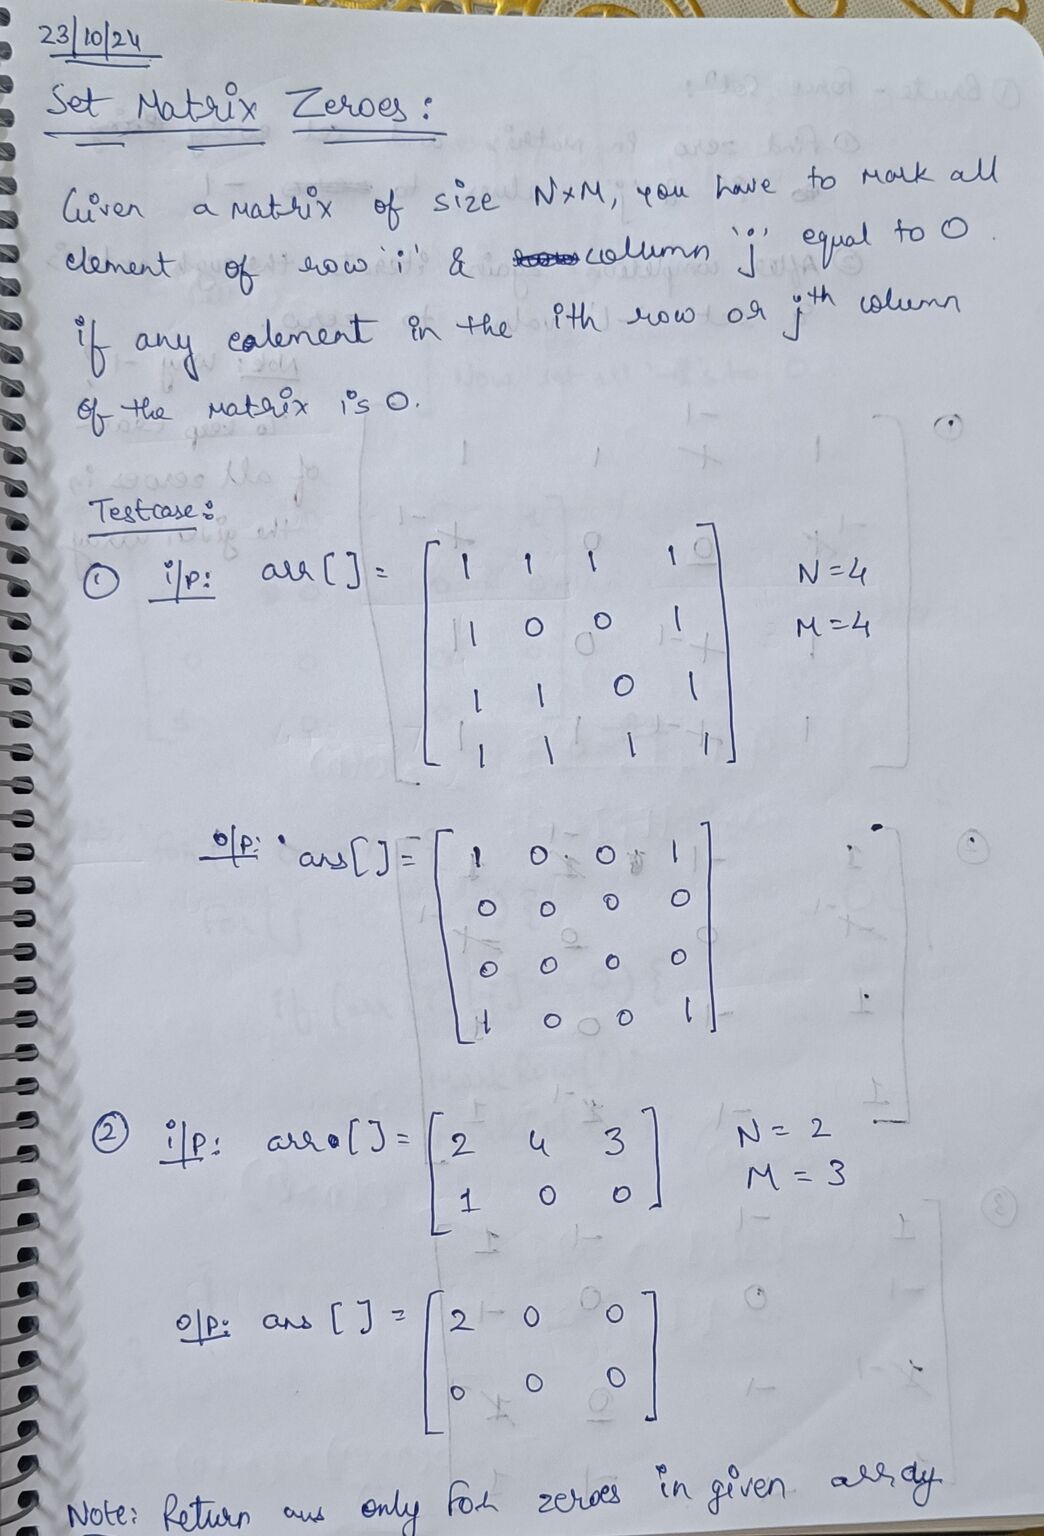 23/10/24
Set Matrix Zeroes:
Given a matrix of size N×M, you have to mark all
element of row 'i' & collumn 'j' equal to 0.
if any ealement in the ith row or jth column
of the matrix is 0.
Testcase:
① i/p: arr[] = [ 1 1 1 1 N=4
1 0 0 1 M=4
1 1 0 1
1 1 1 1 ]
o/p: ans[] = [ 1 0 0 1
0 0 0 0
0 0 0 0
1 0 0 1 ]
② i/p: arr[] = [ 2 4 3 N = 2
1 0 0 ] M = 3
o/p: ans [] = [ 2 0 0
0 0 0 ]
Note: Return ans only for zeroes in given array